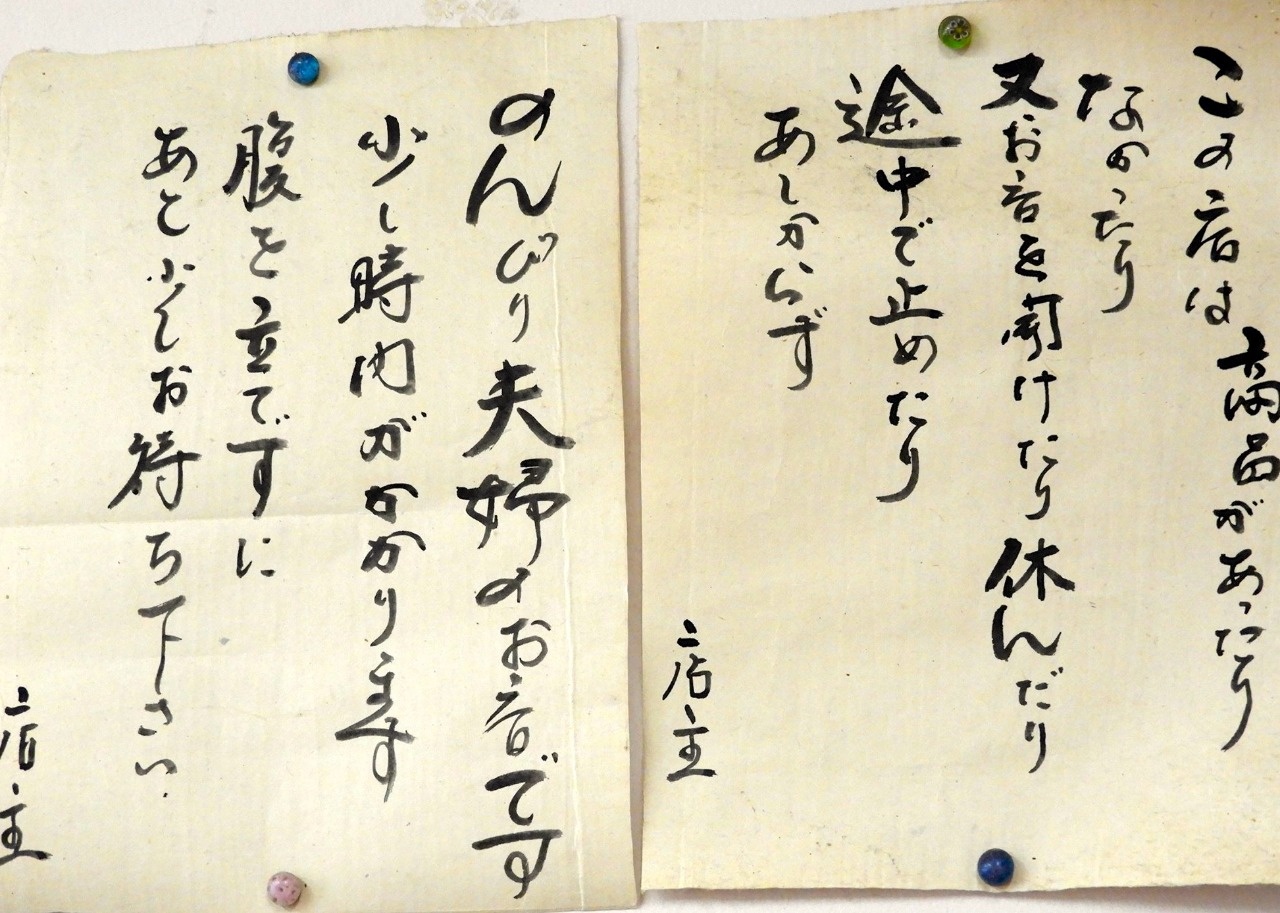 この店は商品があったり
なかったり
又お店を開けたり休んだり
途中で止めたり
あしからず
店主
のんびり夫婦のお店です
少し時間がかかります
腹を立てずに
あと少しお待ち下さい
店主